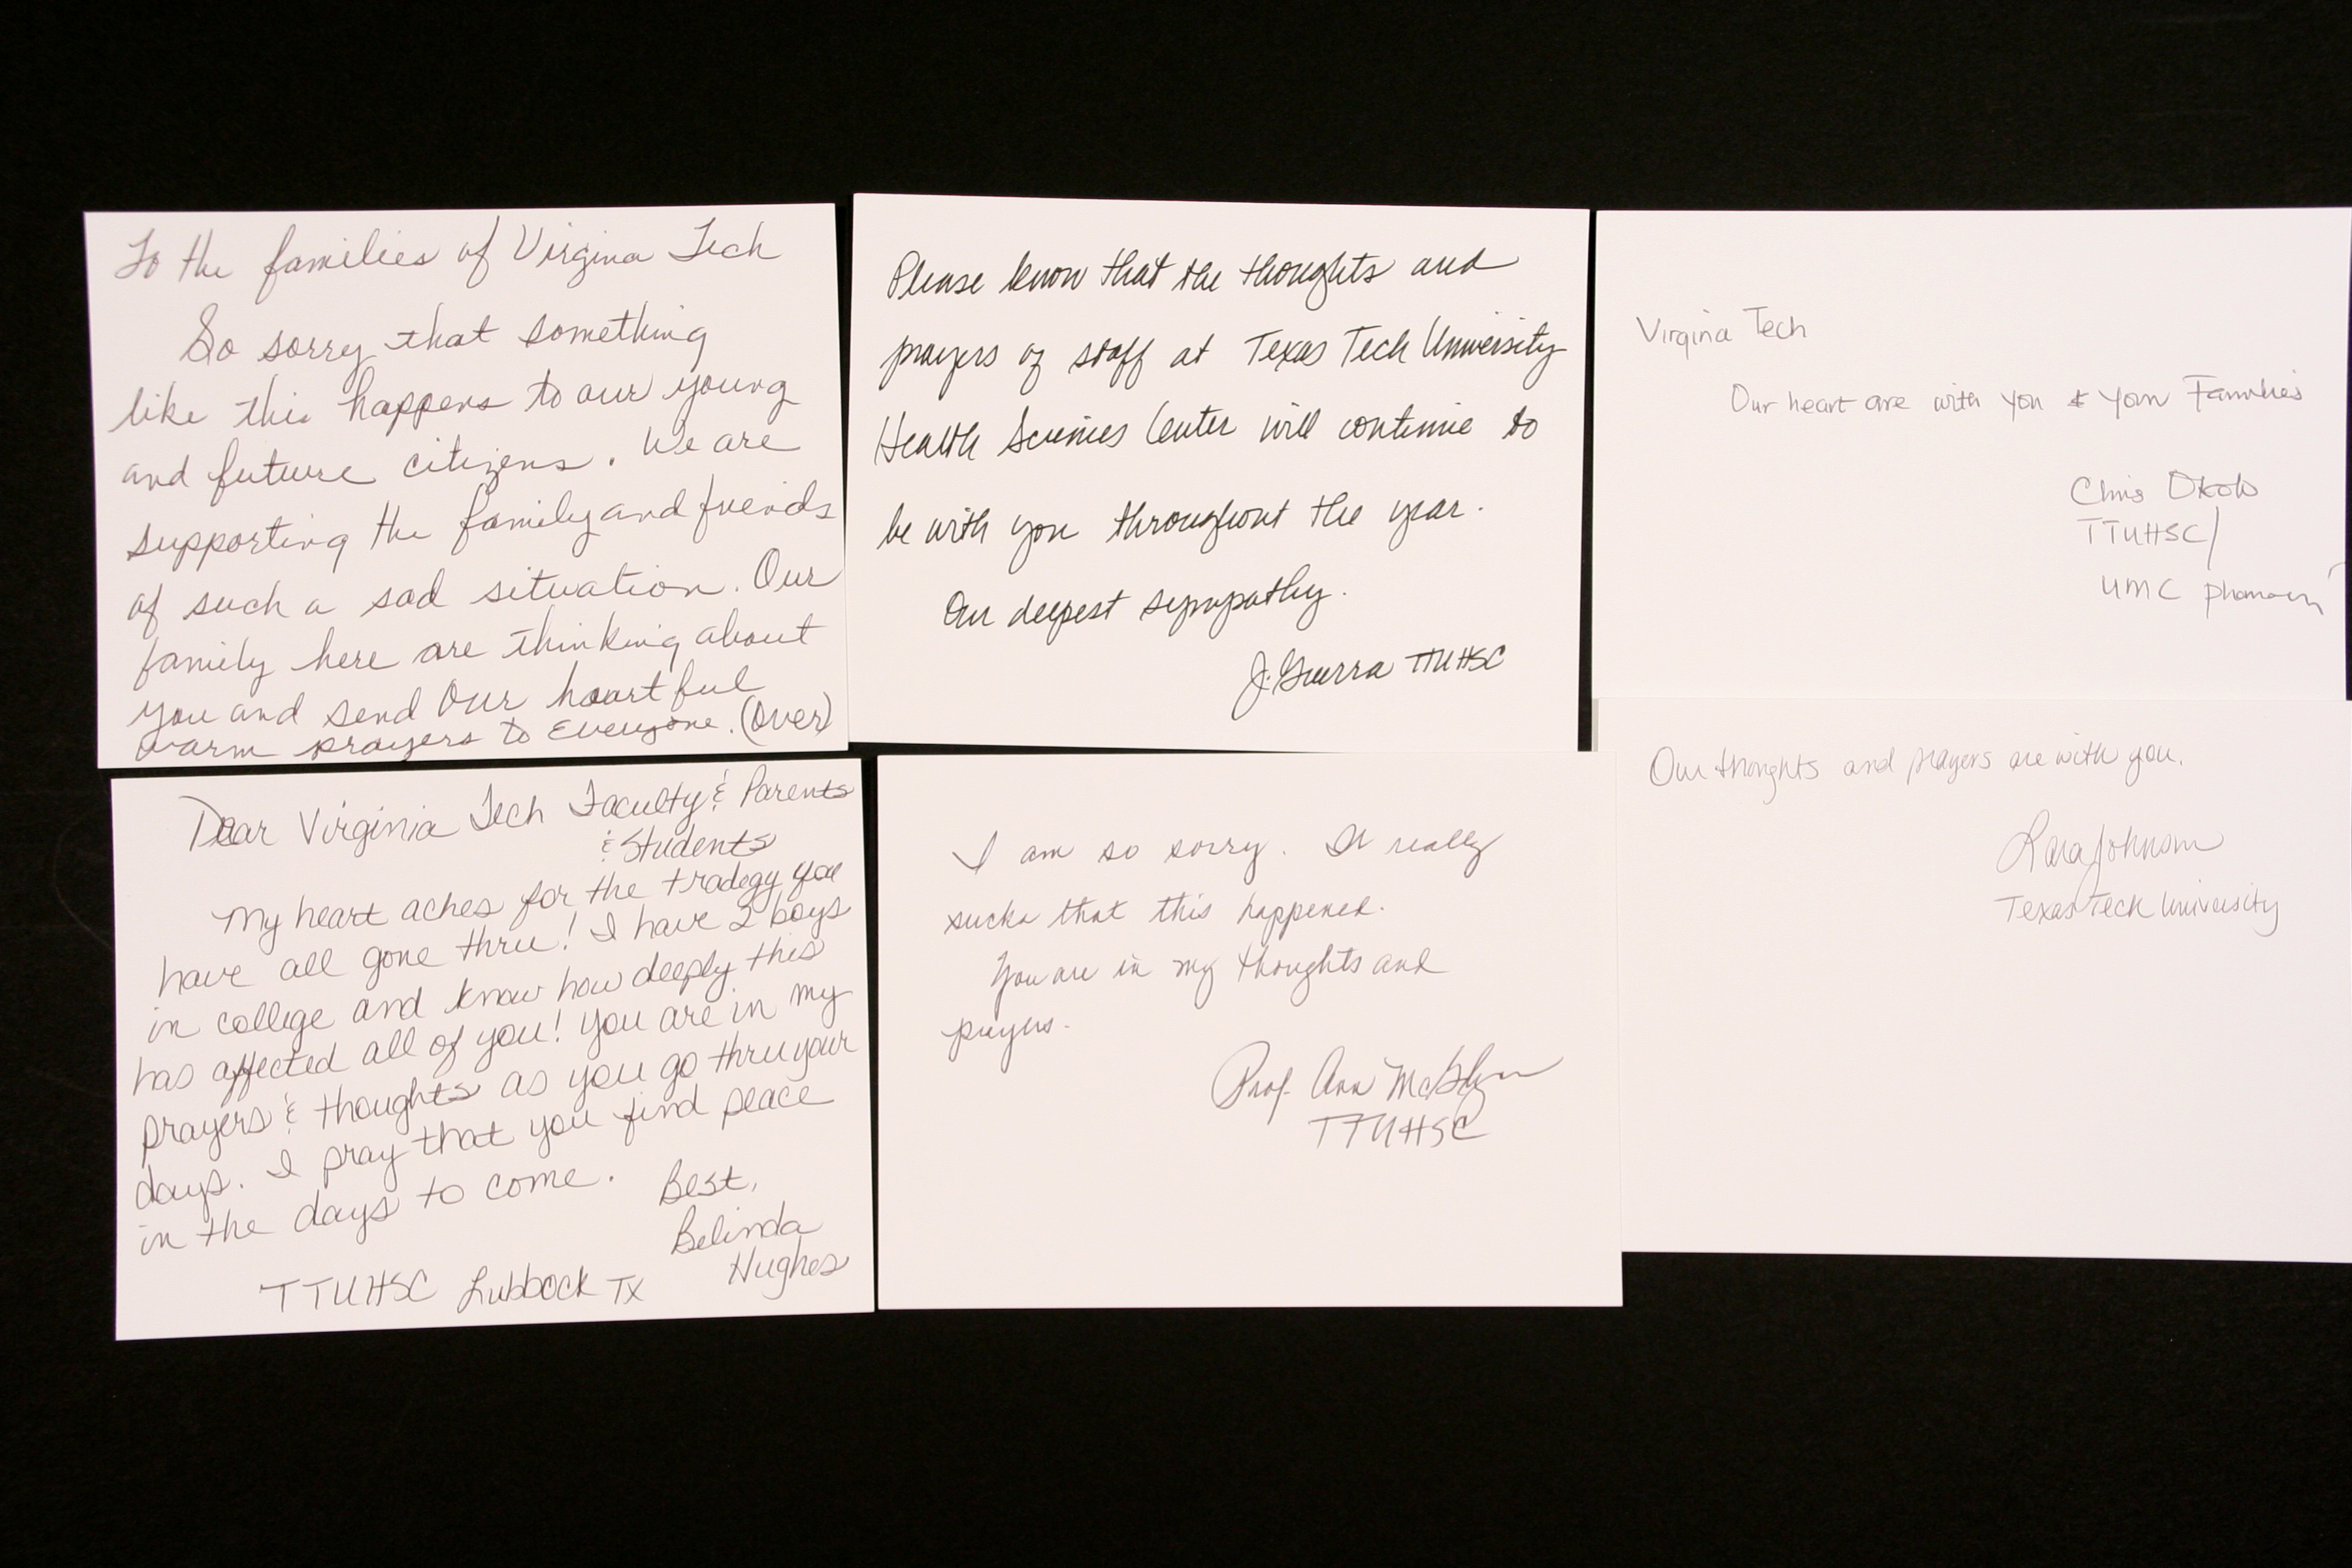 To the families of Virgina Tech
So sorry that something
like this happens to our young
and future citizens. We are
supporting the family and friends
of such a sad situation. Our
family here are thinking about
you and send our heartful
warm prayers to Everyone. (Over)
Please know that the thoughts and
prayers of staff at Texas Tech University
Health Sciences Center will continue to
be with you throughout the year.
Our deepest sympathy.
J. Guerra TTUHSC
Virgina Tech
Our heart are with you & your Families
Chris
TTUHSC/
UMC
Dear Virginia Tech Faculty & Parents
& Students
My heart aches for the tradegy you
have all gone thru! I have 2 boys
in college and know how deeply this
has affected all of you! You are in my
prayers & thoughts as you go thru your
days. I pray that you find peace
in the days to come.
Best,
Belinda
Hughes
TTUHSC Lubbock TX
I am so sorry. It really
sucks that this happened.
You are in my thoughts and
prayers.
Prof. Ann
TTUHSC
Our thoughts and prayers are with you.
Lara Johnson
Texas Tech University